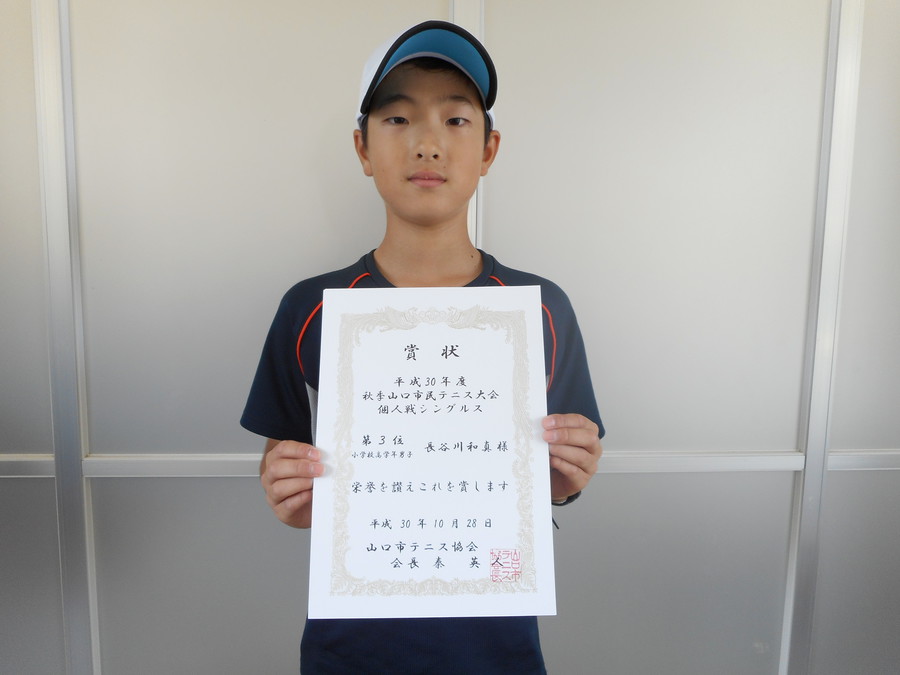 賞状
平成30年度
秋季山口市民テニス大会
個人戦シングルス
第3位 長谷川和真様
小学校高学年男子
栄誉を讃えこれを賞します
平成30年10月28日
山口市テニス協会
会長 秦 英人